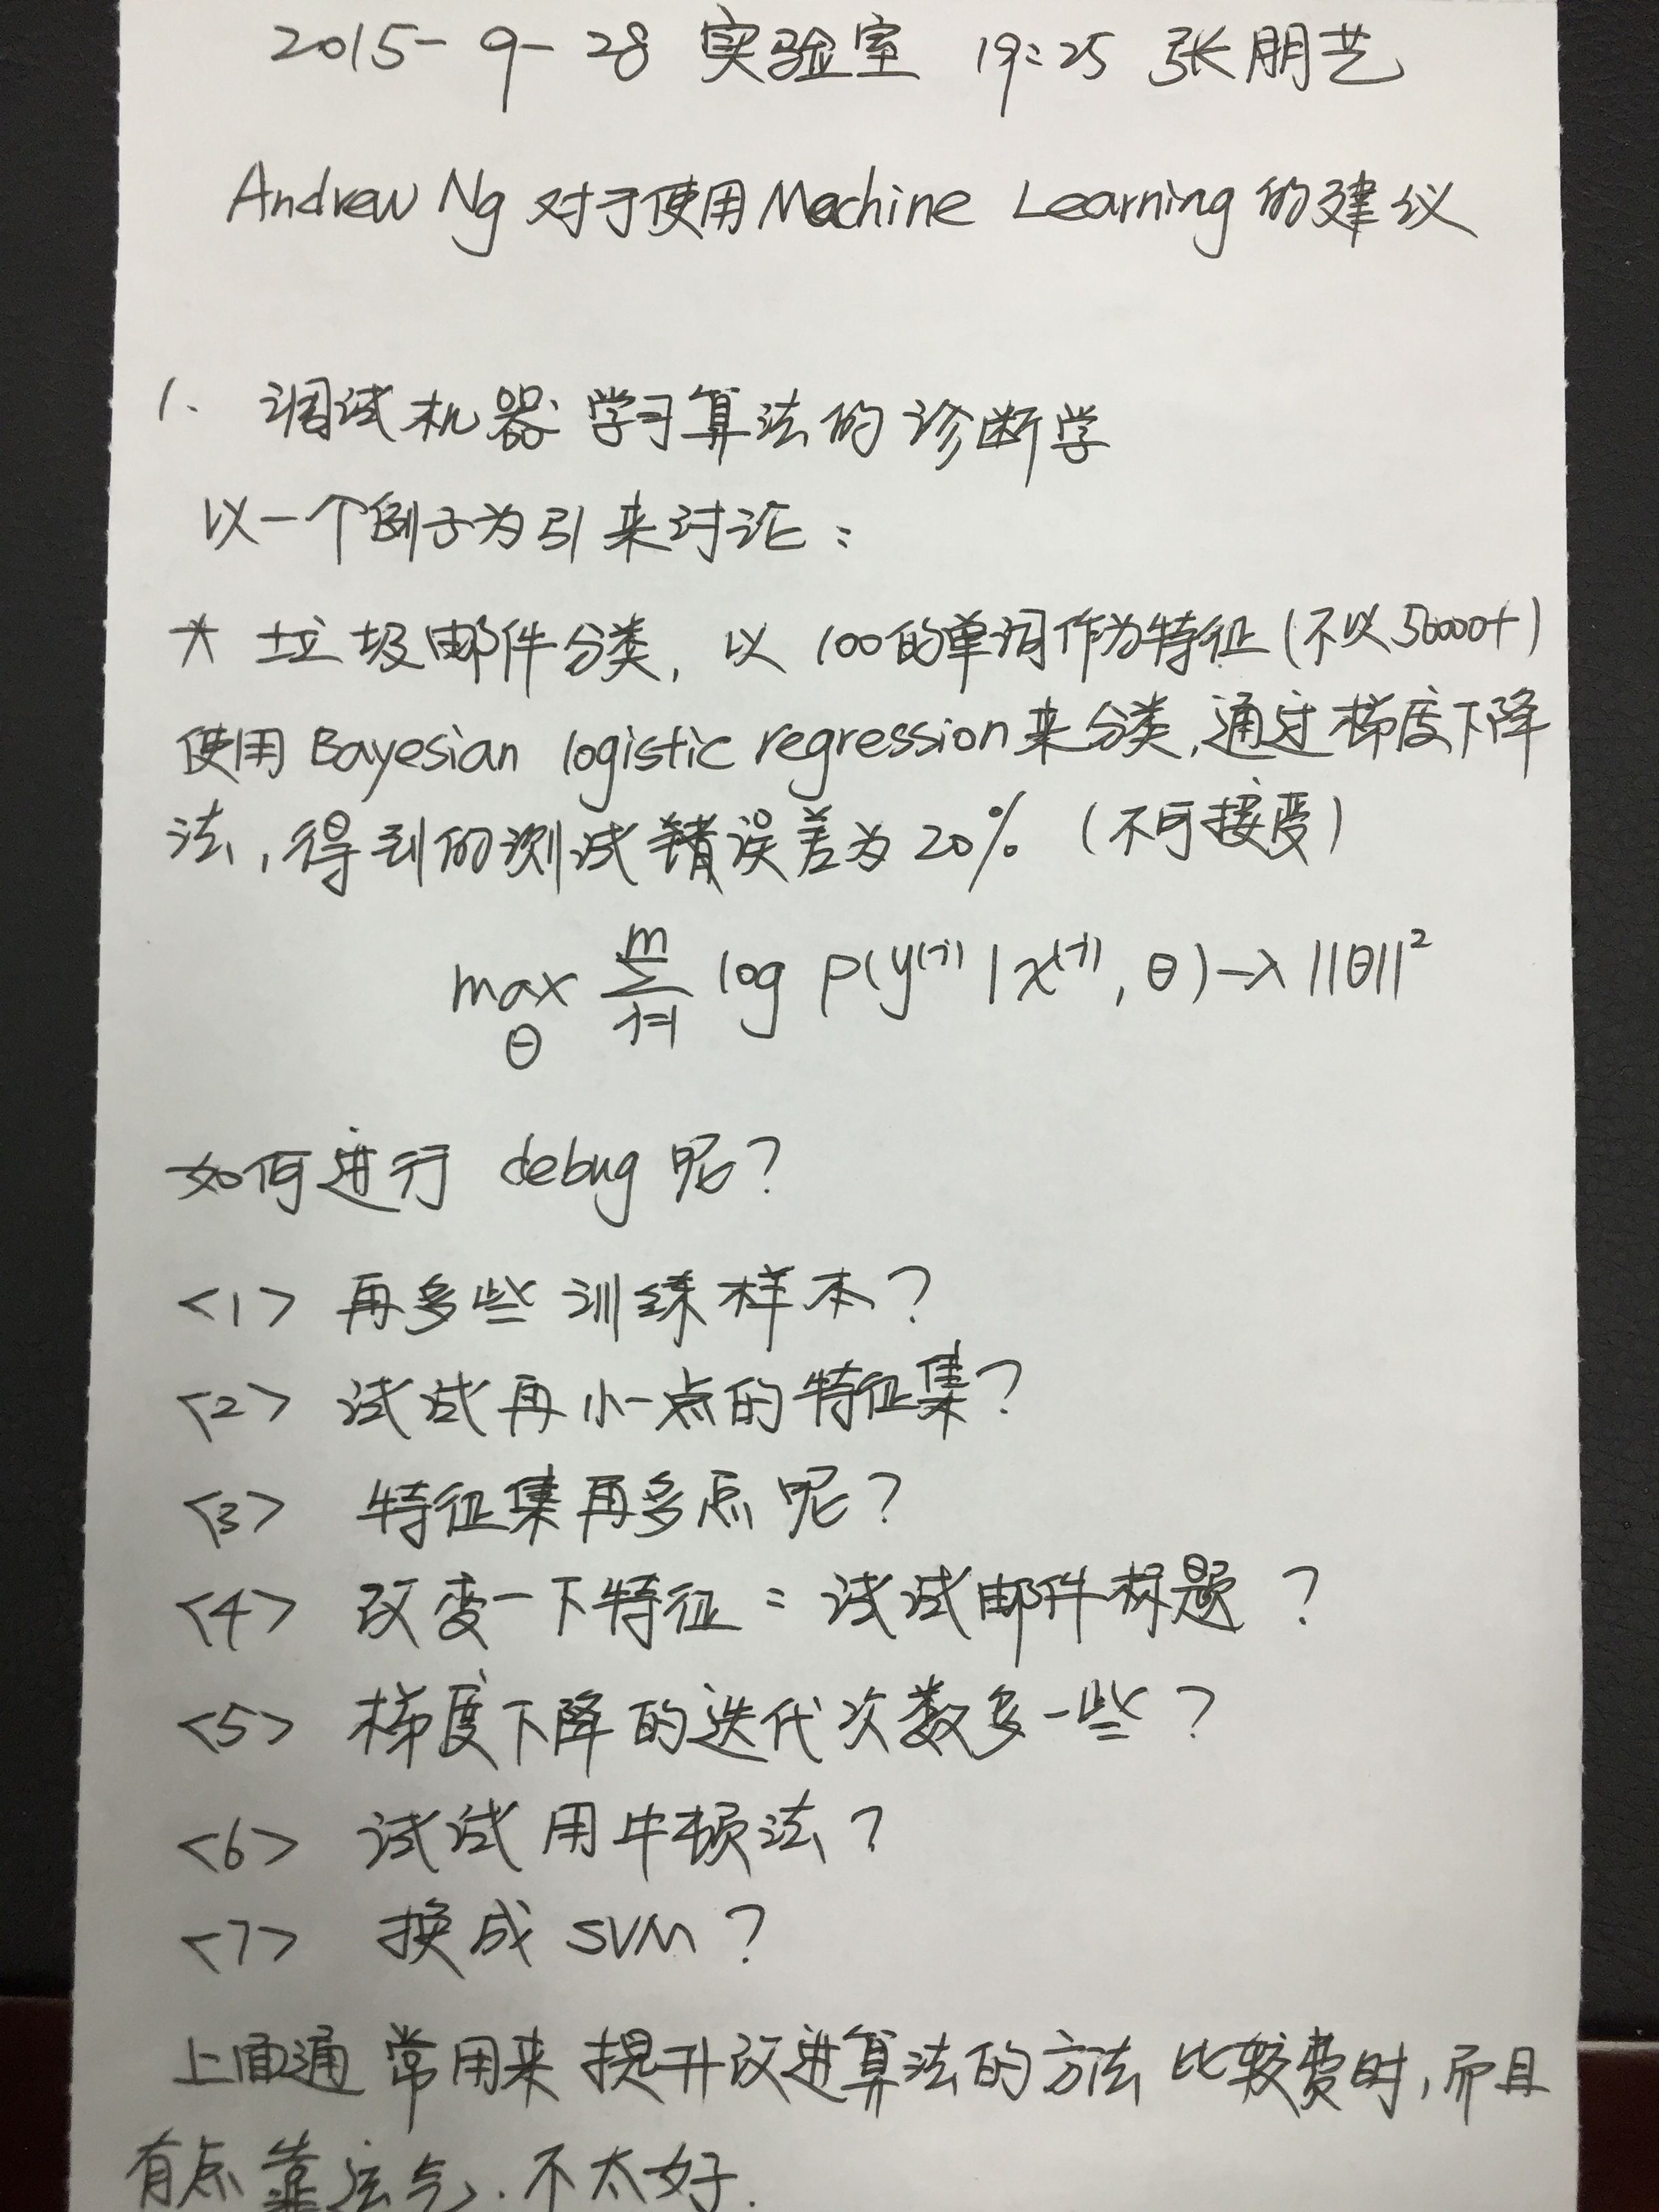 2015-9-28 实验室 19:25 张朋艺
Andrew Ng 对于使用Machine Learning的建议
1. 调试机器学习算法的诊断学
以一个例子为引来讨论:
* 垃圾邮件分类, 以100的单词作为特征(不以50000+)
使用Bayesian logistic regression来分类,通过梯度下降
法,得到的测试错误差为20% (不可接受)
max_θ ∑_{i=1}^{m} log p(y^{(i)} | x^{(i)}, θ) - λ||θ||²
如何进行 debug 呢?
<1> 再多些训练样本?
<2> 试试再小一点的特征集?
<3> 特征集再多点呢?
<4> 改变一下特征: 试试邮件标题?
<5> 梯度下降的迭代次数多一些?
<6> 试试用牛顿法?
<7> 换成 SVM?
上面通常用来提升改进算法的方法比较费时,而且
有点靠运气.不太好.